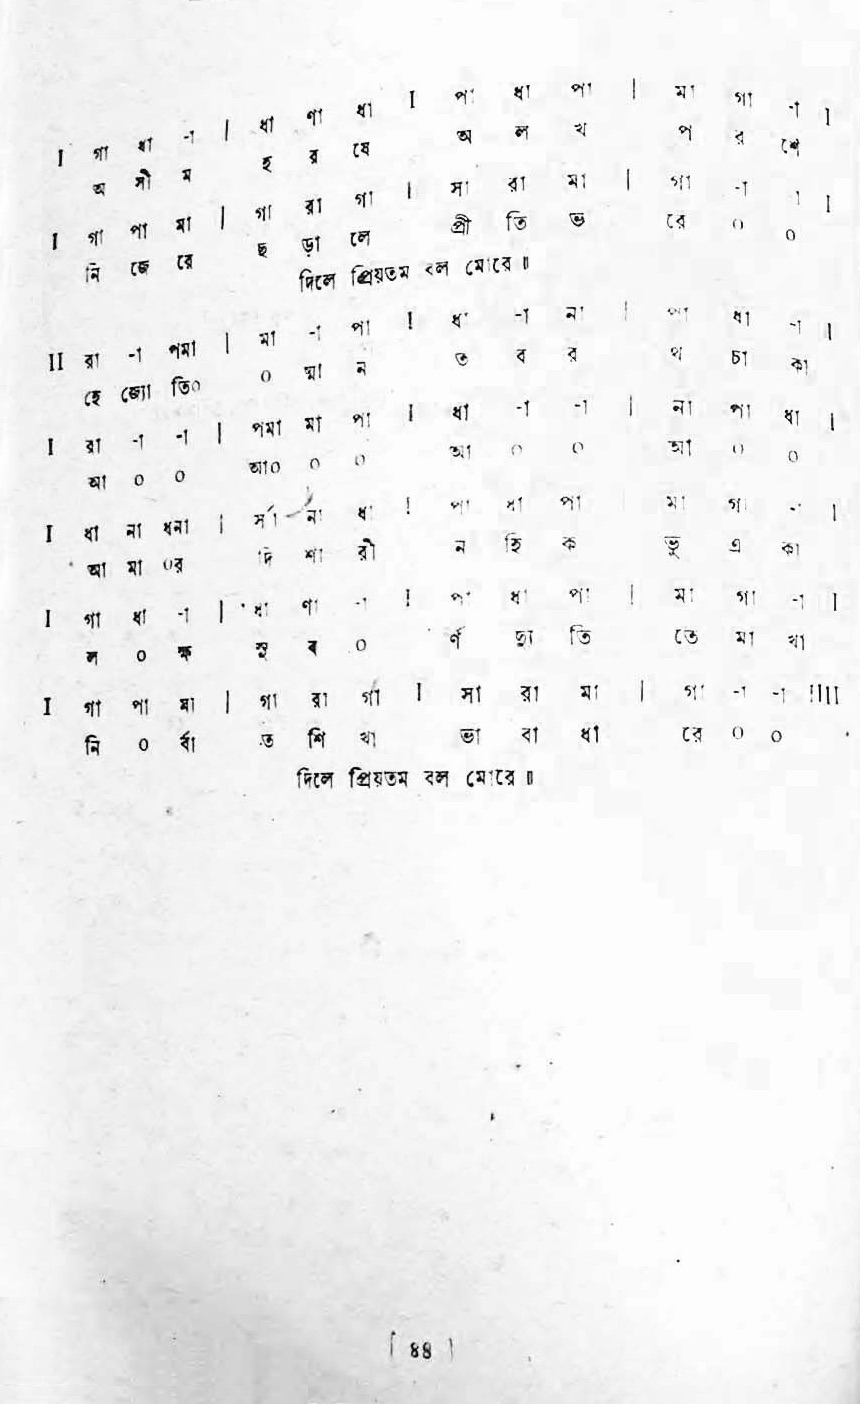 I গা ধা -া | ধা ণা ধা I পা ধা পা | মা গা -া I
অ সী ম হ র ষে অ ল খ প র শে
I গা পা মা | গা রা গা I সা রা মা | গা -া -া I
নি জে রে ছ ড়া লে প্রী তি ভ রে ০ ০
দিলে প্রিয়তম বল মোরে॥
II রা -া পমা | মা -া পা I ধা -া না | পা ধা -া I
হে জ্যো তি০ ০ ষ্মা ন ত ব র থ চা কা
I রা -া -া | পমা মা পা I ধা -া -া | না পা ধা I
আ ০ ০ আ০ ০ ০ আ ০ ০ আ ০ ০
I ধা না ধনা | র্সা না ধা I পা ধা পা | মা গা -া I
আ মা ০র দি শা রী ন হি ক ভু এ কা
I গা ধা -া | ধা ণা -া I পা ধা পা | মা গা -া I
ল ০ ক্ষ সু ব ০ র্ণ দ্যু তি তে মা খা
I গা পা মা | গা রা গা I সা রা মা | গা -া -া IIII
নি ০ র্বা ত শি খা ভা বা ধা রে ০ ০
দিলে প্রিয়তম বল মোরে॥
[ ৪৪ ]